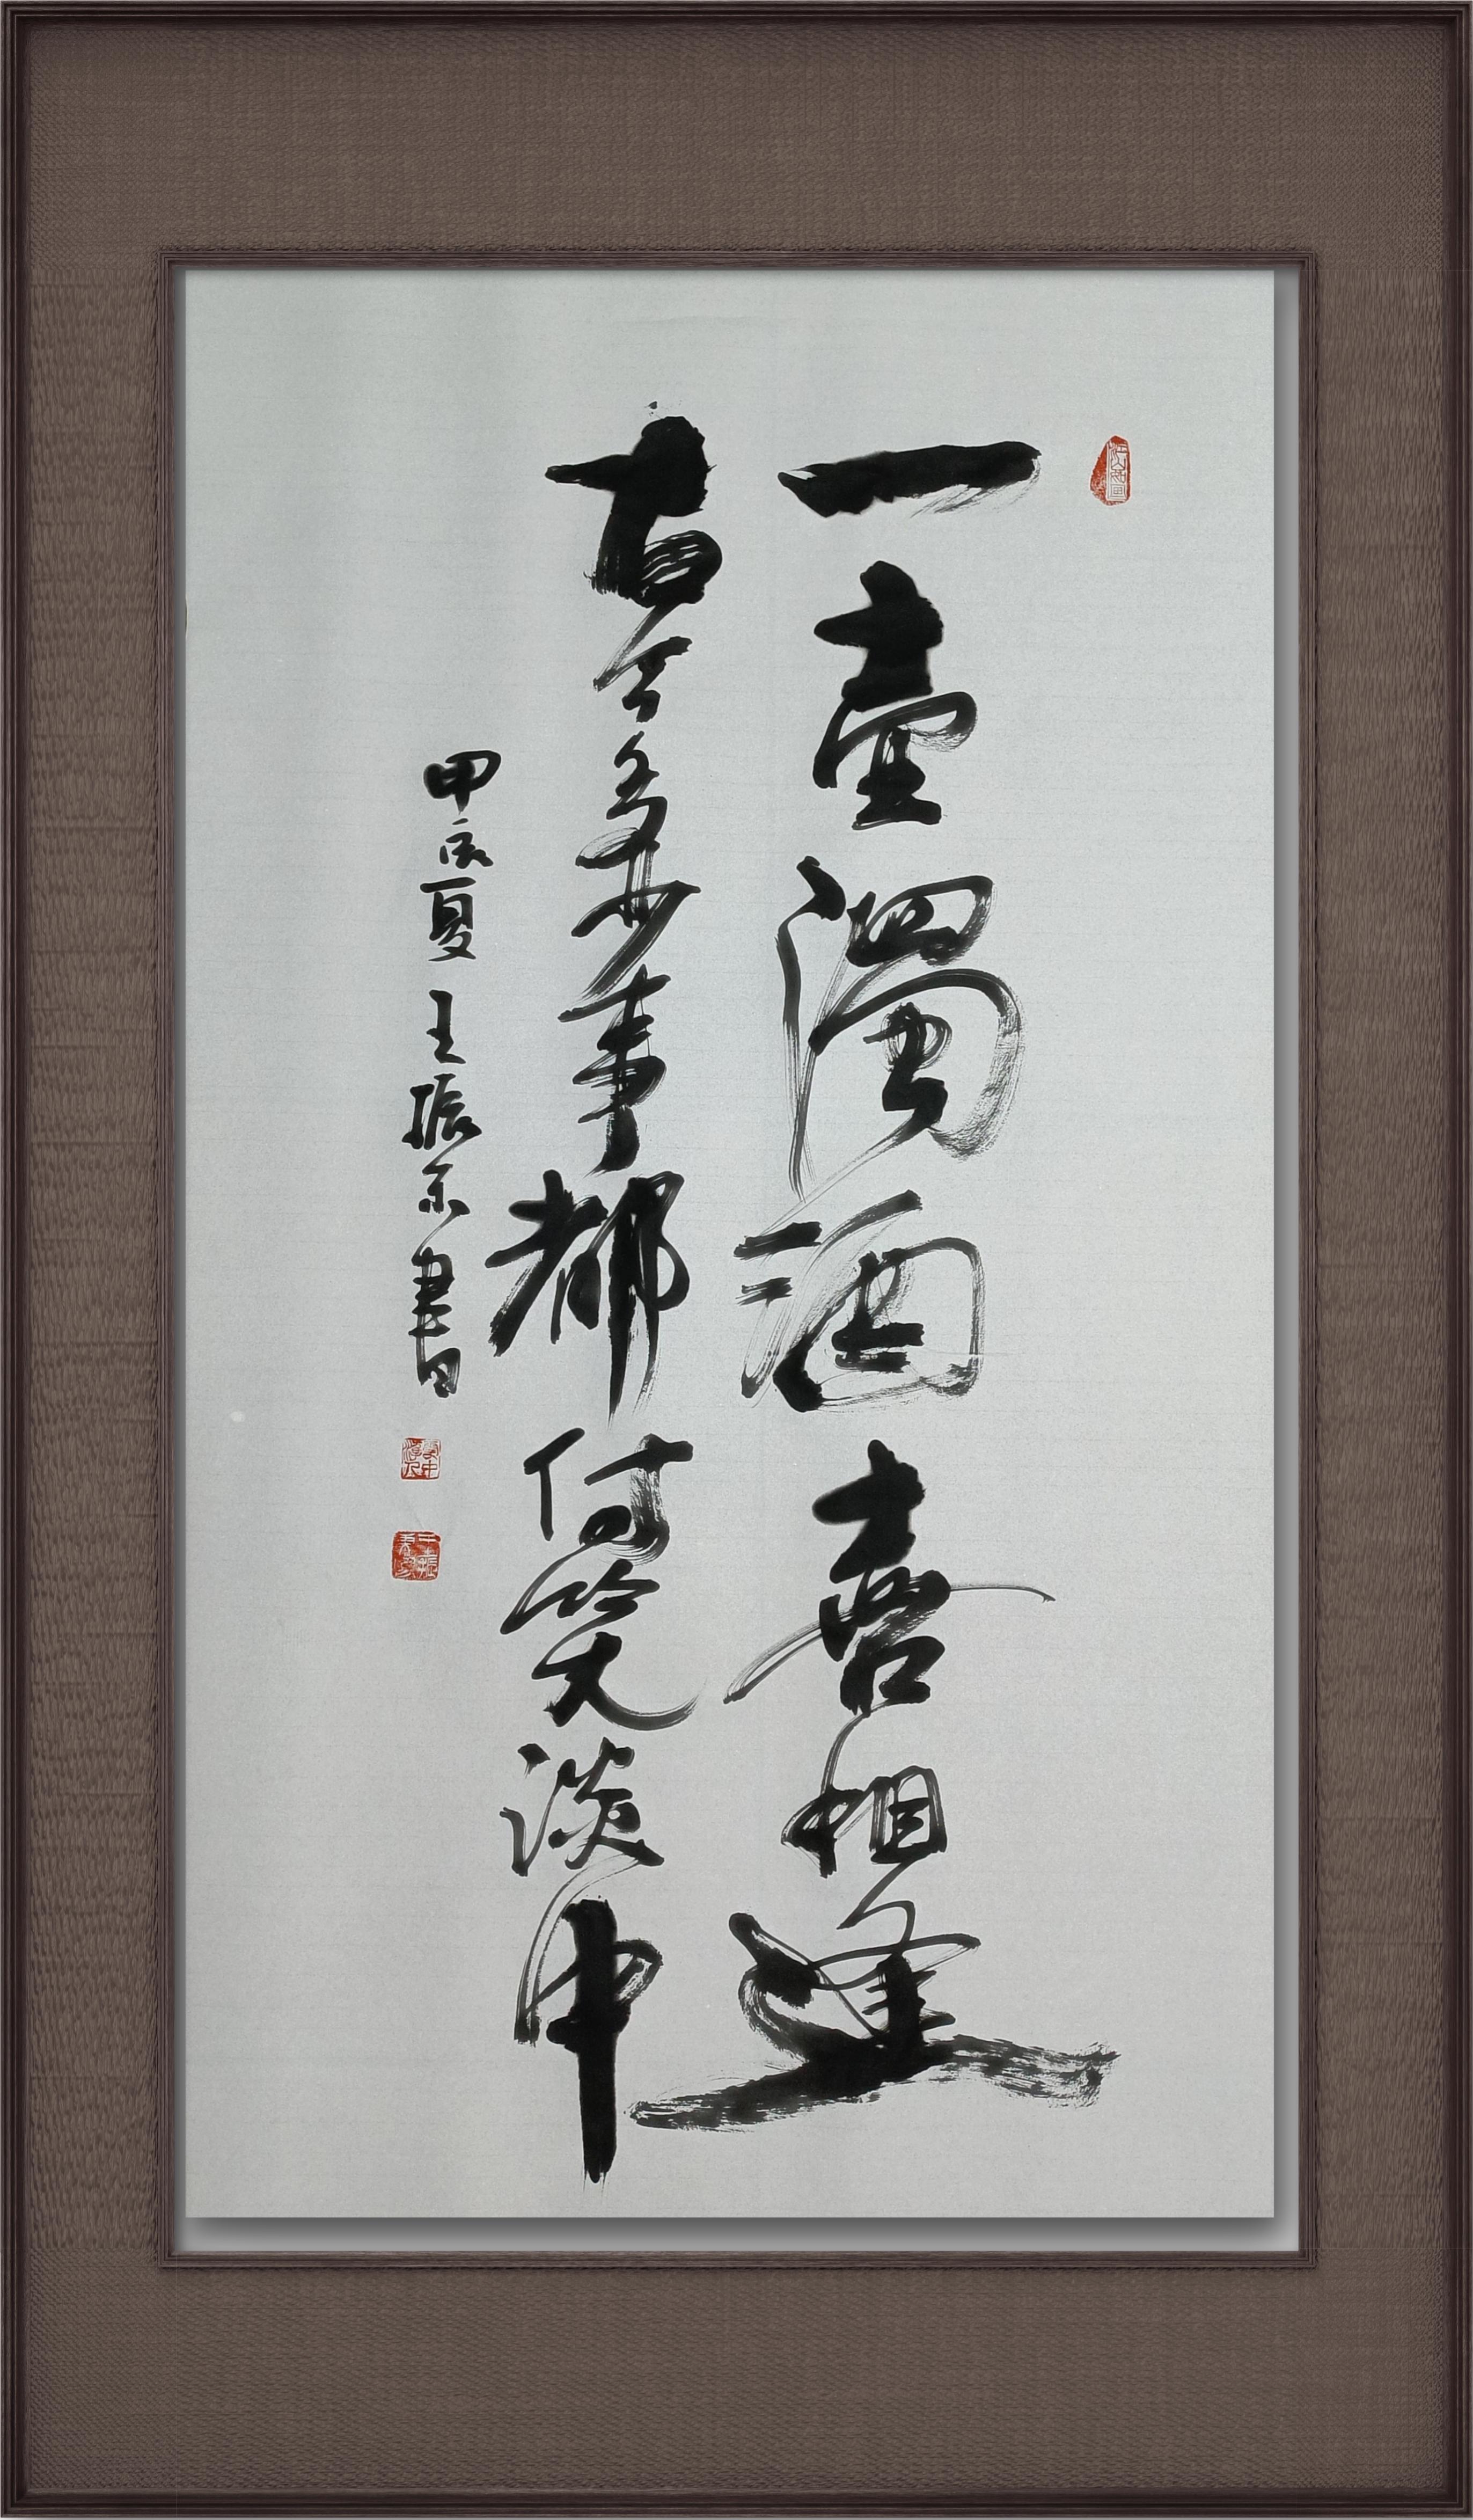 一壺濁酒喜相逢
古今多少事都付笑談中
甲辰夏 王振書